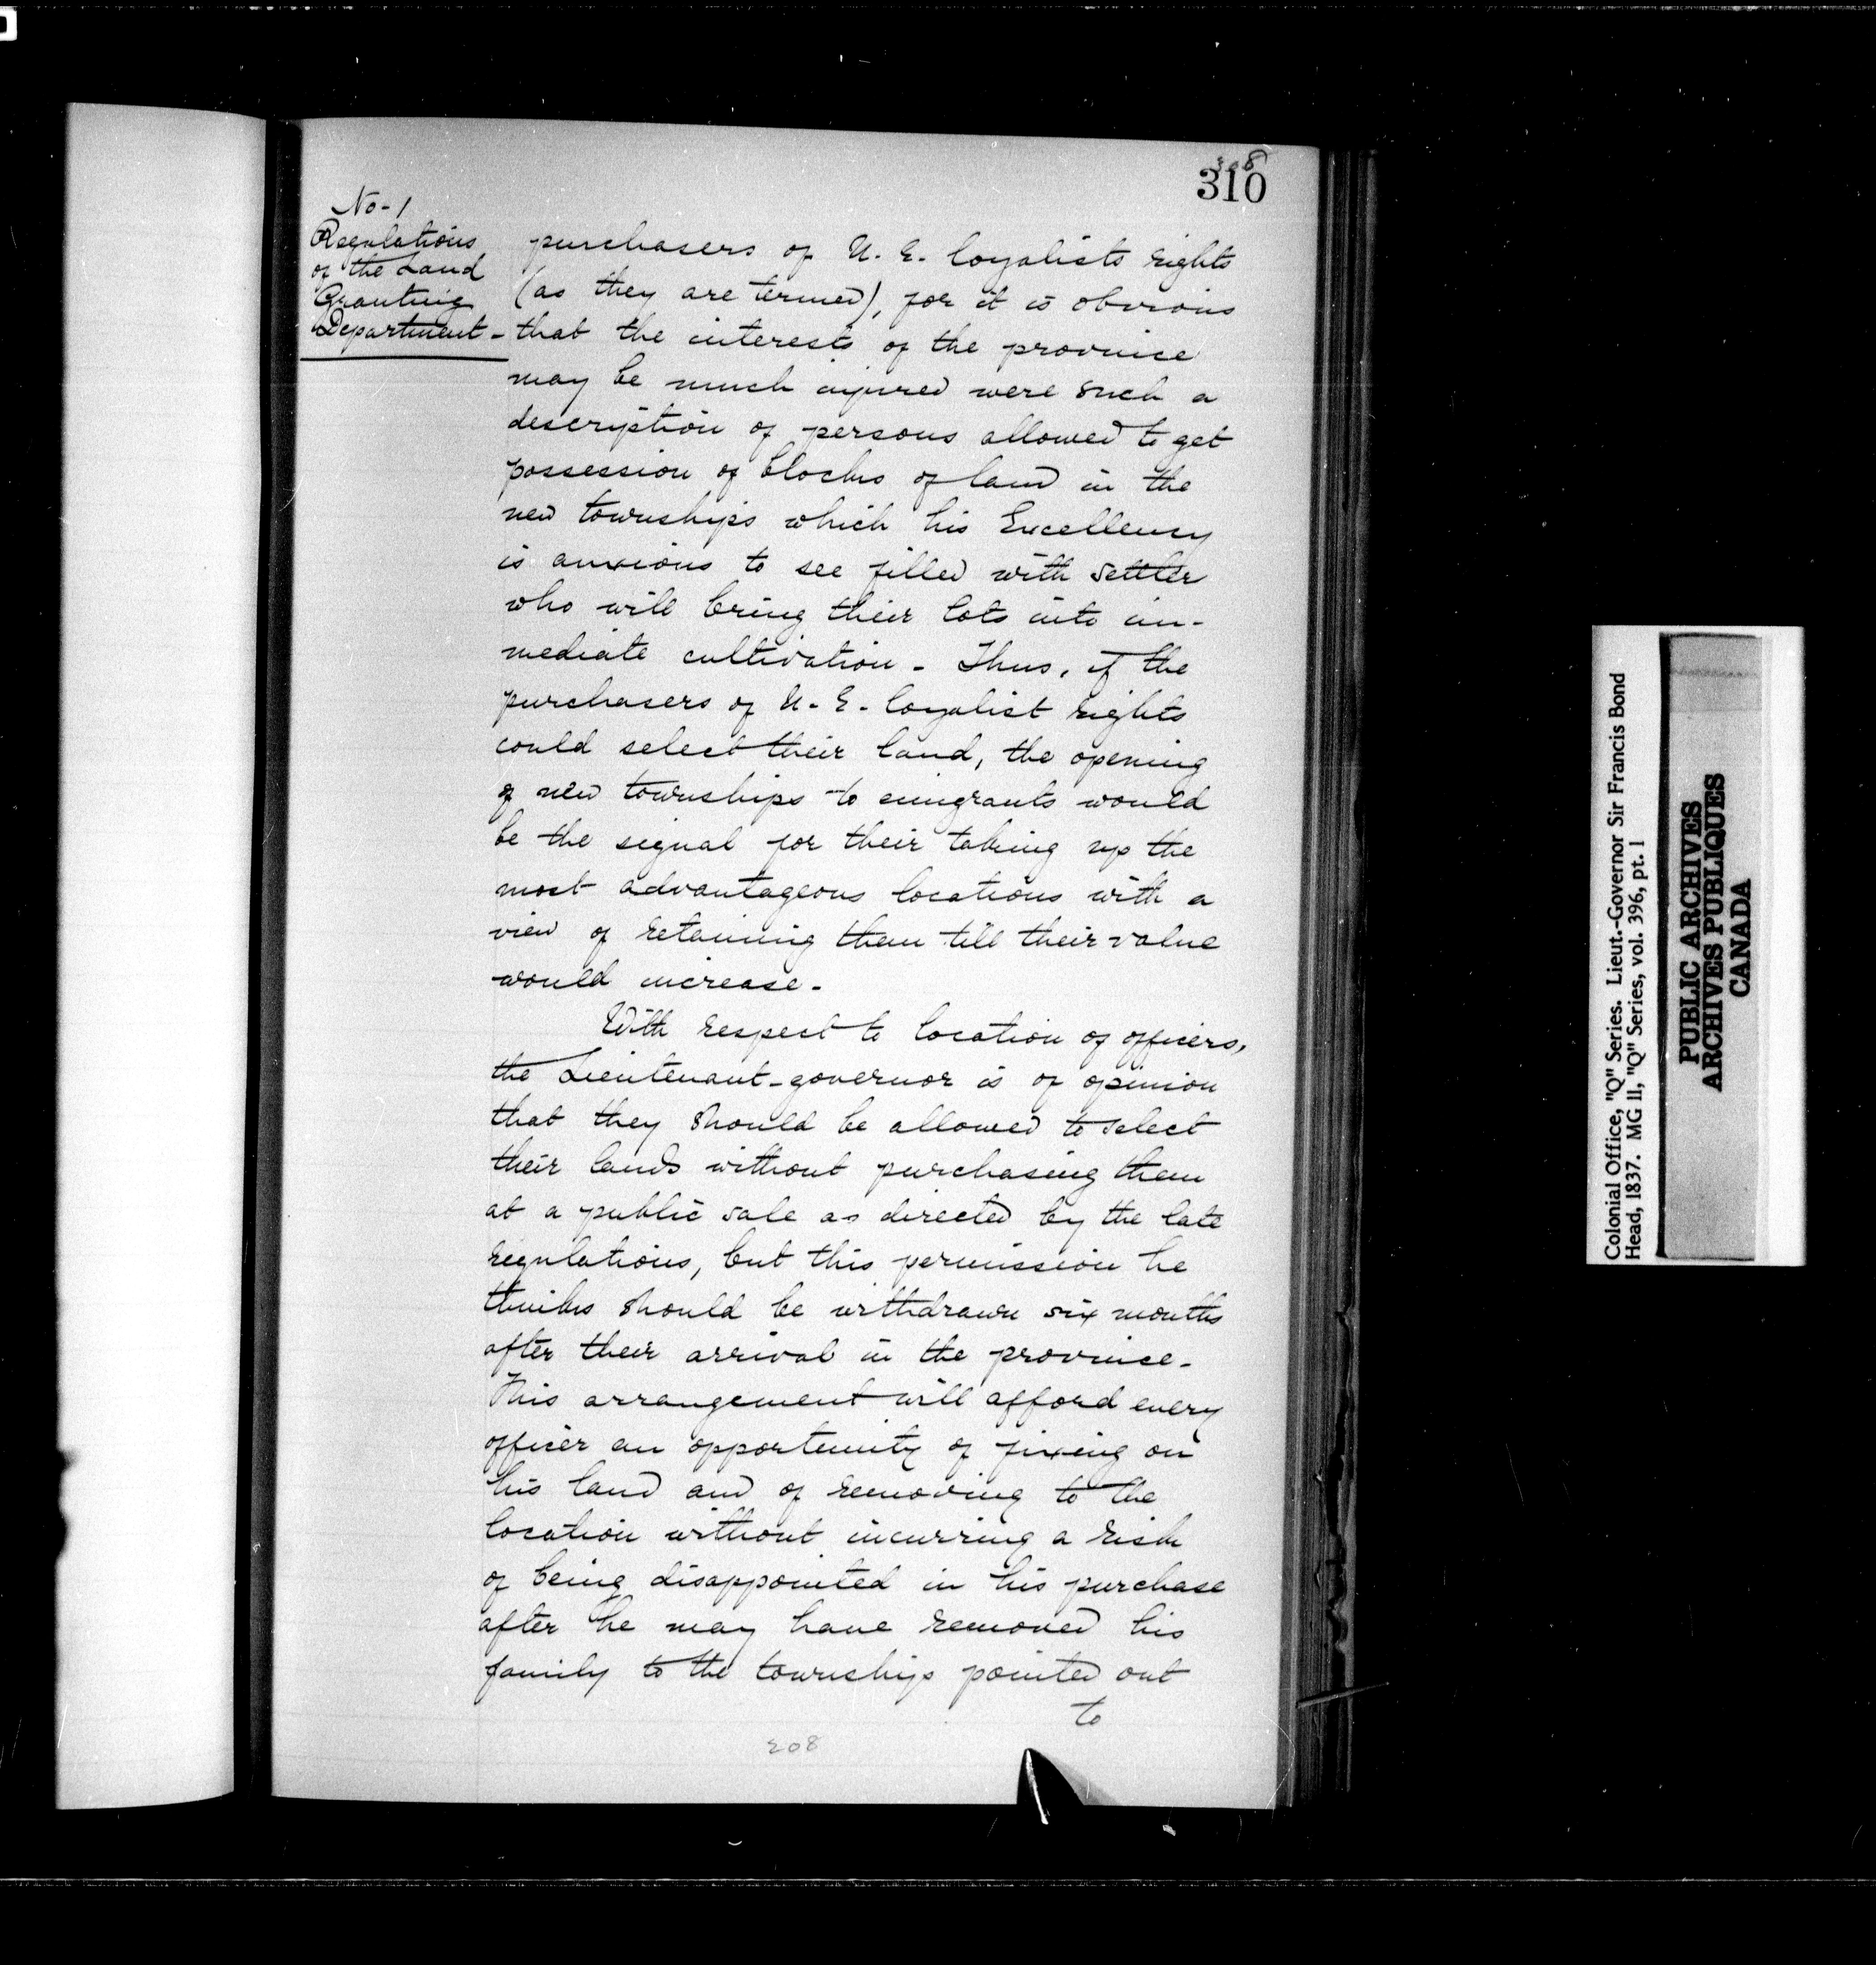 308
310
No-1
Regulations
of the Land
Granting
Department-
purchasers of U. E. loyalists rights
(as they are termed), for it is obvious
that the interests of the province
may be much injured were such a
description of persons allowed to get
possession of blocks of land in the
new townships which his Excellency
is anxious to see filled with settler
who will bring their lots into im-
mediate cultivation - Thus, if the
purchasers of U. E. loyalist rights
could select their land, the opening
of new townships to emigrants would
be the signal for their taking up the
most advantageous locations with a
view of retaining them till their value
would increase -
With respect to location of officers,
the Lieutenant-governor is of opinion
that they should be allowed to select
their lands without purchasing them
at a public sale as directed by the late
regulations, but this permission he
thinks should be withdrawn six months
after their arrival in the province -
This arrangement will afford every
officer an opportunity of fixing on
his land and of removing to the
location without incurring a risk
of being disappointed in his purchase
after he may have removed his
family to the township pointed out
to
208
Colonial Office, "Q" Series. Lieut.-Governor Sir Francis Bond
Head, 1837. MG 11, "Q" Series, vol. 396, pt. 1
PUBLIC ARCHIVES
ARCHIVES PUBLIQUES
CANADA